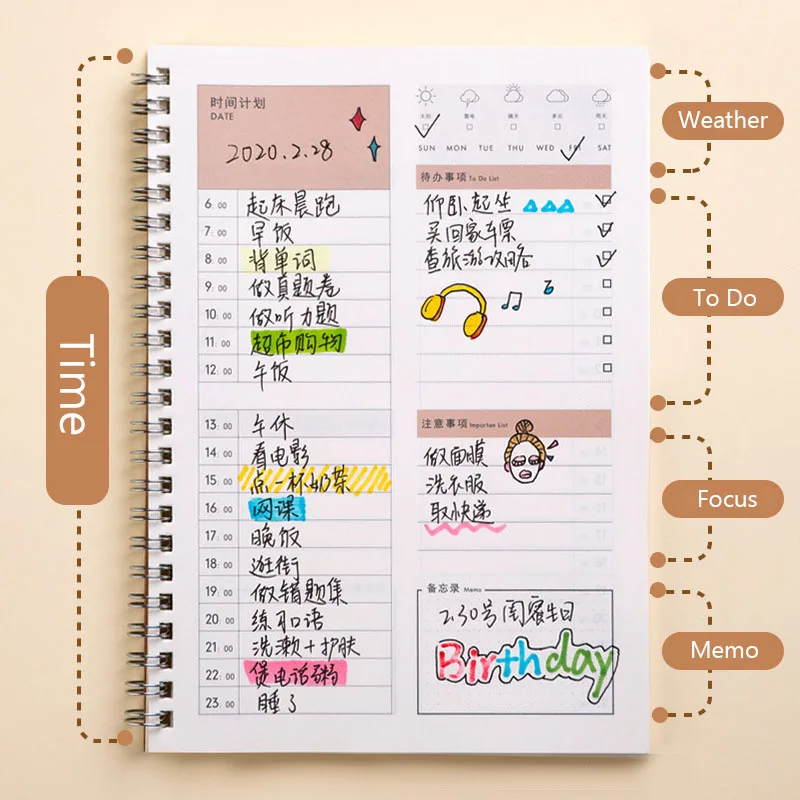 Time
时间计划
DATE
2020.2.28
6:00 起床晨跑
7:00 早饭
8:00 背单词
9:00 做真题卷
10:00 做听力题
11:00 超市购物
12:00 午饭
13:00 午休
14:00 看电影
15:00 点一杯奶茶
16:00 网课
17:00 晚饭
18:00 逛街
19:00 做错题集
20:00 练习口语
21:00 洗漱+护肤
22:00 煲电话粥
23:00 睡了
太阳 雷电 晴天 多云 雨天
SUN MON TUE THU WED FRI SAT
待办事项 To Do List
仰卧起坐
买回家车票
查旅游攻略
注意事项 Important List
做面膜
洗衣服
取快递
备忘录 Memo
2.30号闺蜜生日
Birthday
Weather
To Do
Focus
Memo